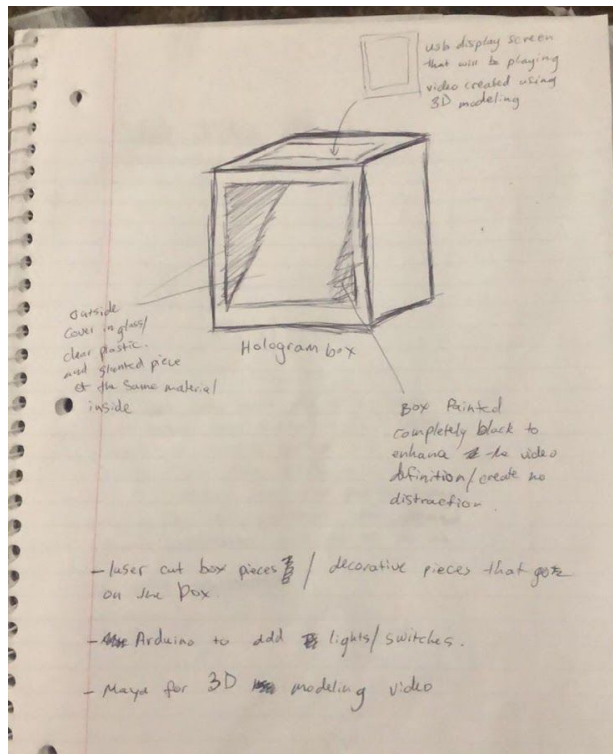 usb display screen
that will be playing
video created using
3D modeling
outside
Cover in glass/
clear plastic.
and slanted piece
of the same material
inside
Hologram box
Box Painted
completely black to
enhance the video
definition/create no
distraction.
- laser cut box pieces / decorative pieces that go
on the box
- Arduino to add lights/switches.
- Maya for 3D modeling video